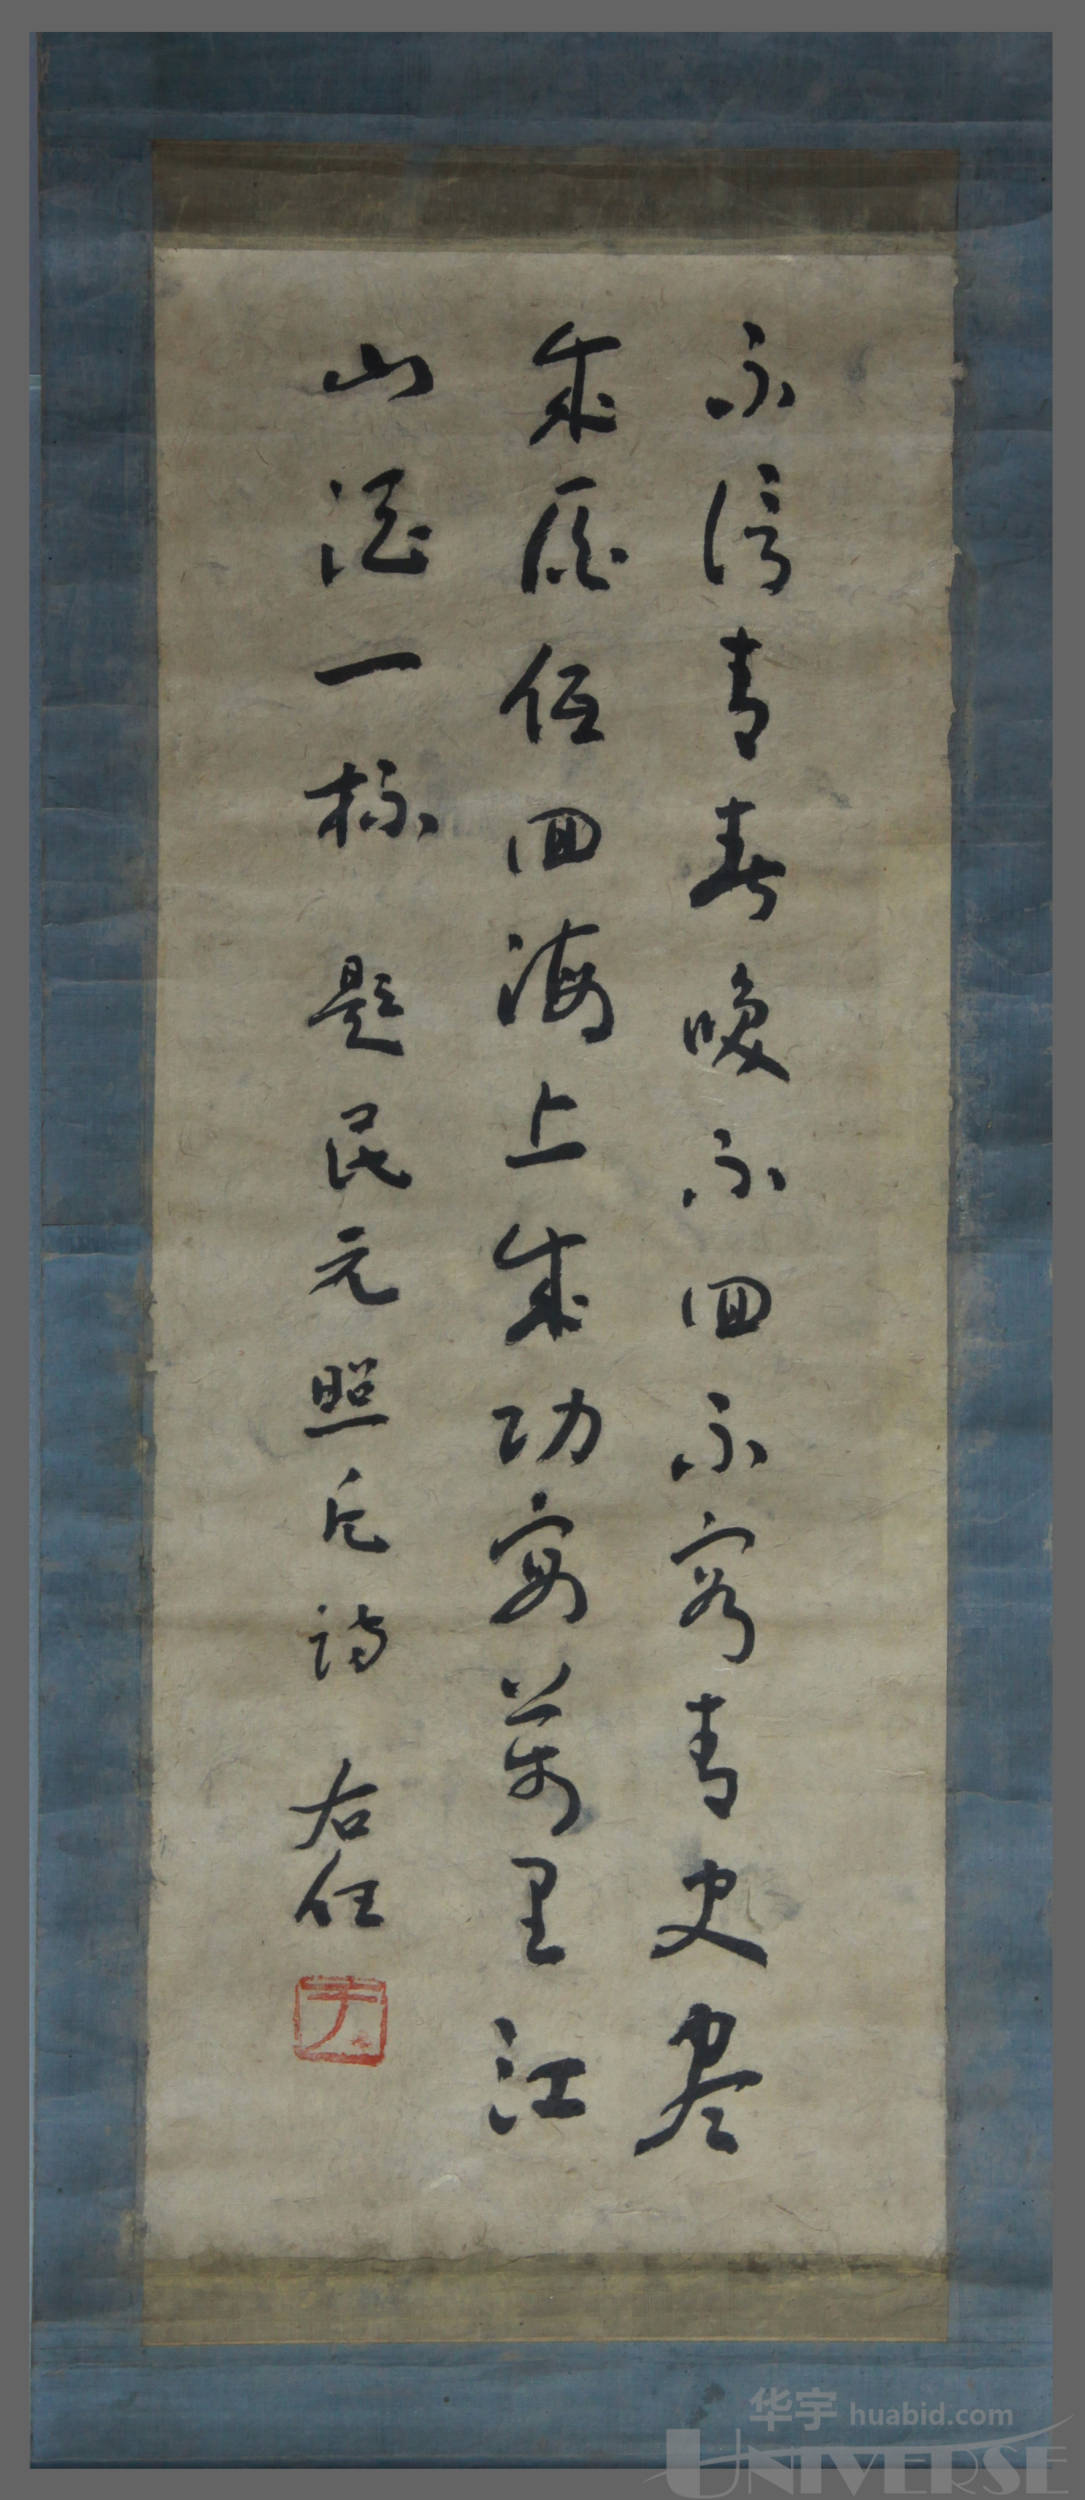 不信青春喚不回不容青史盡
成灰低回海上成功宴萬里江
山酒一杯 題民元照片詩 右任
华宇 huabid.com
UNIVERSE